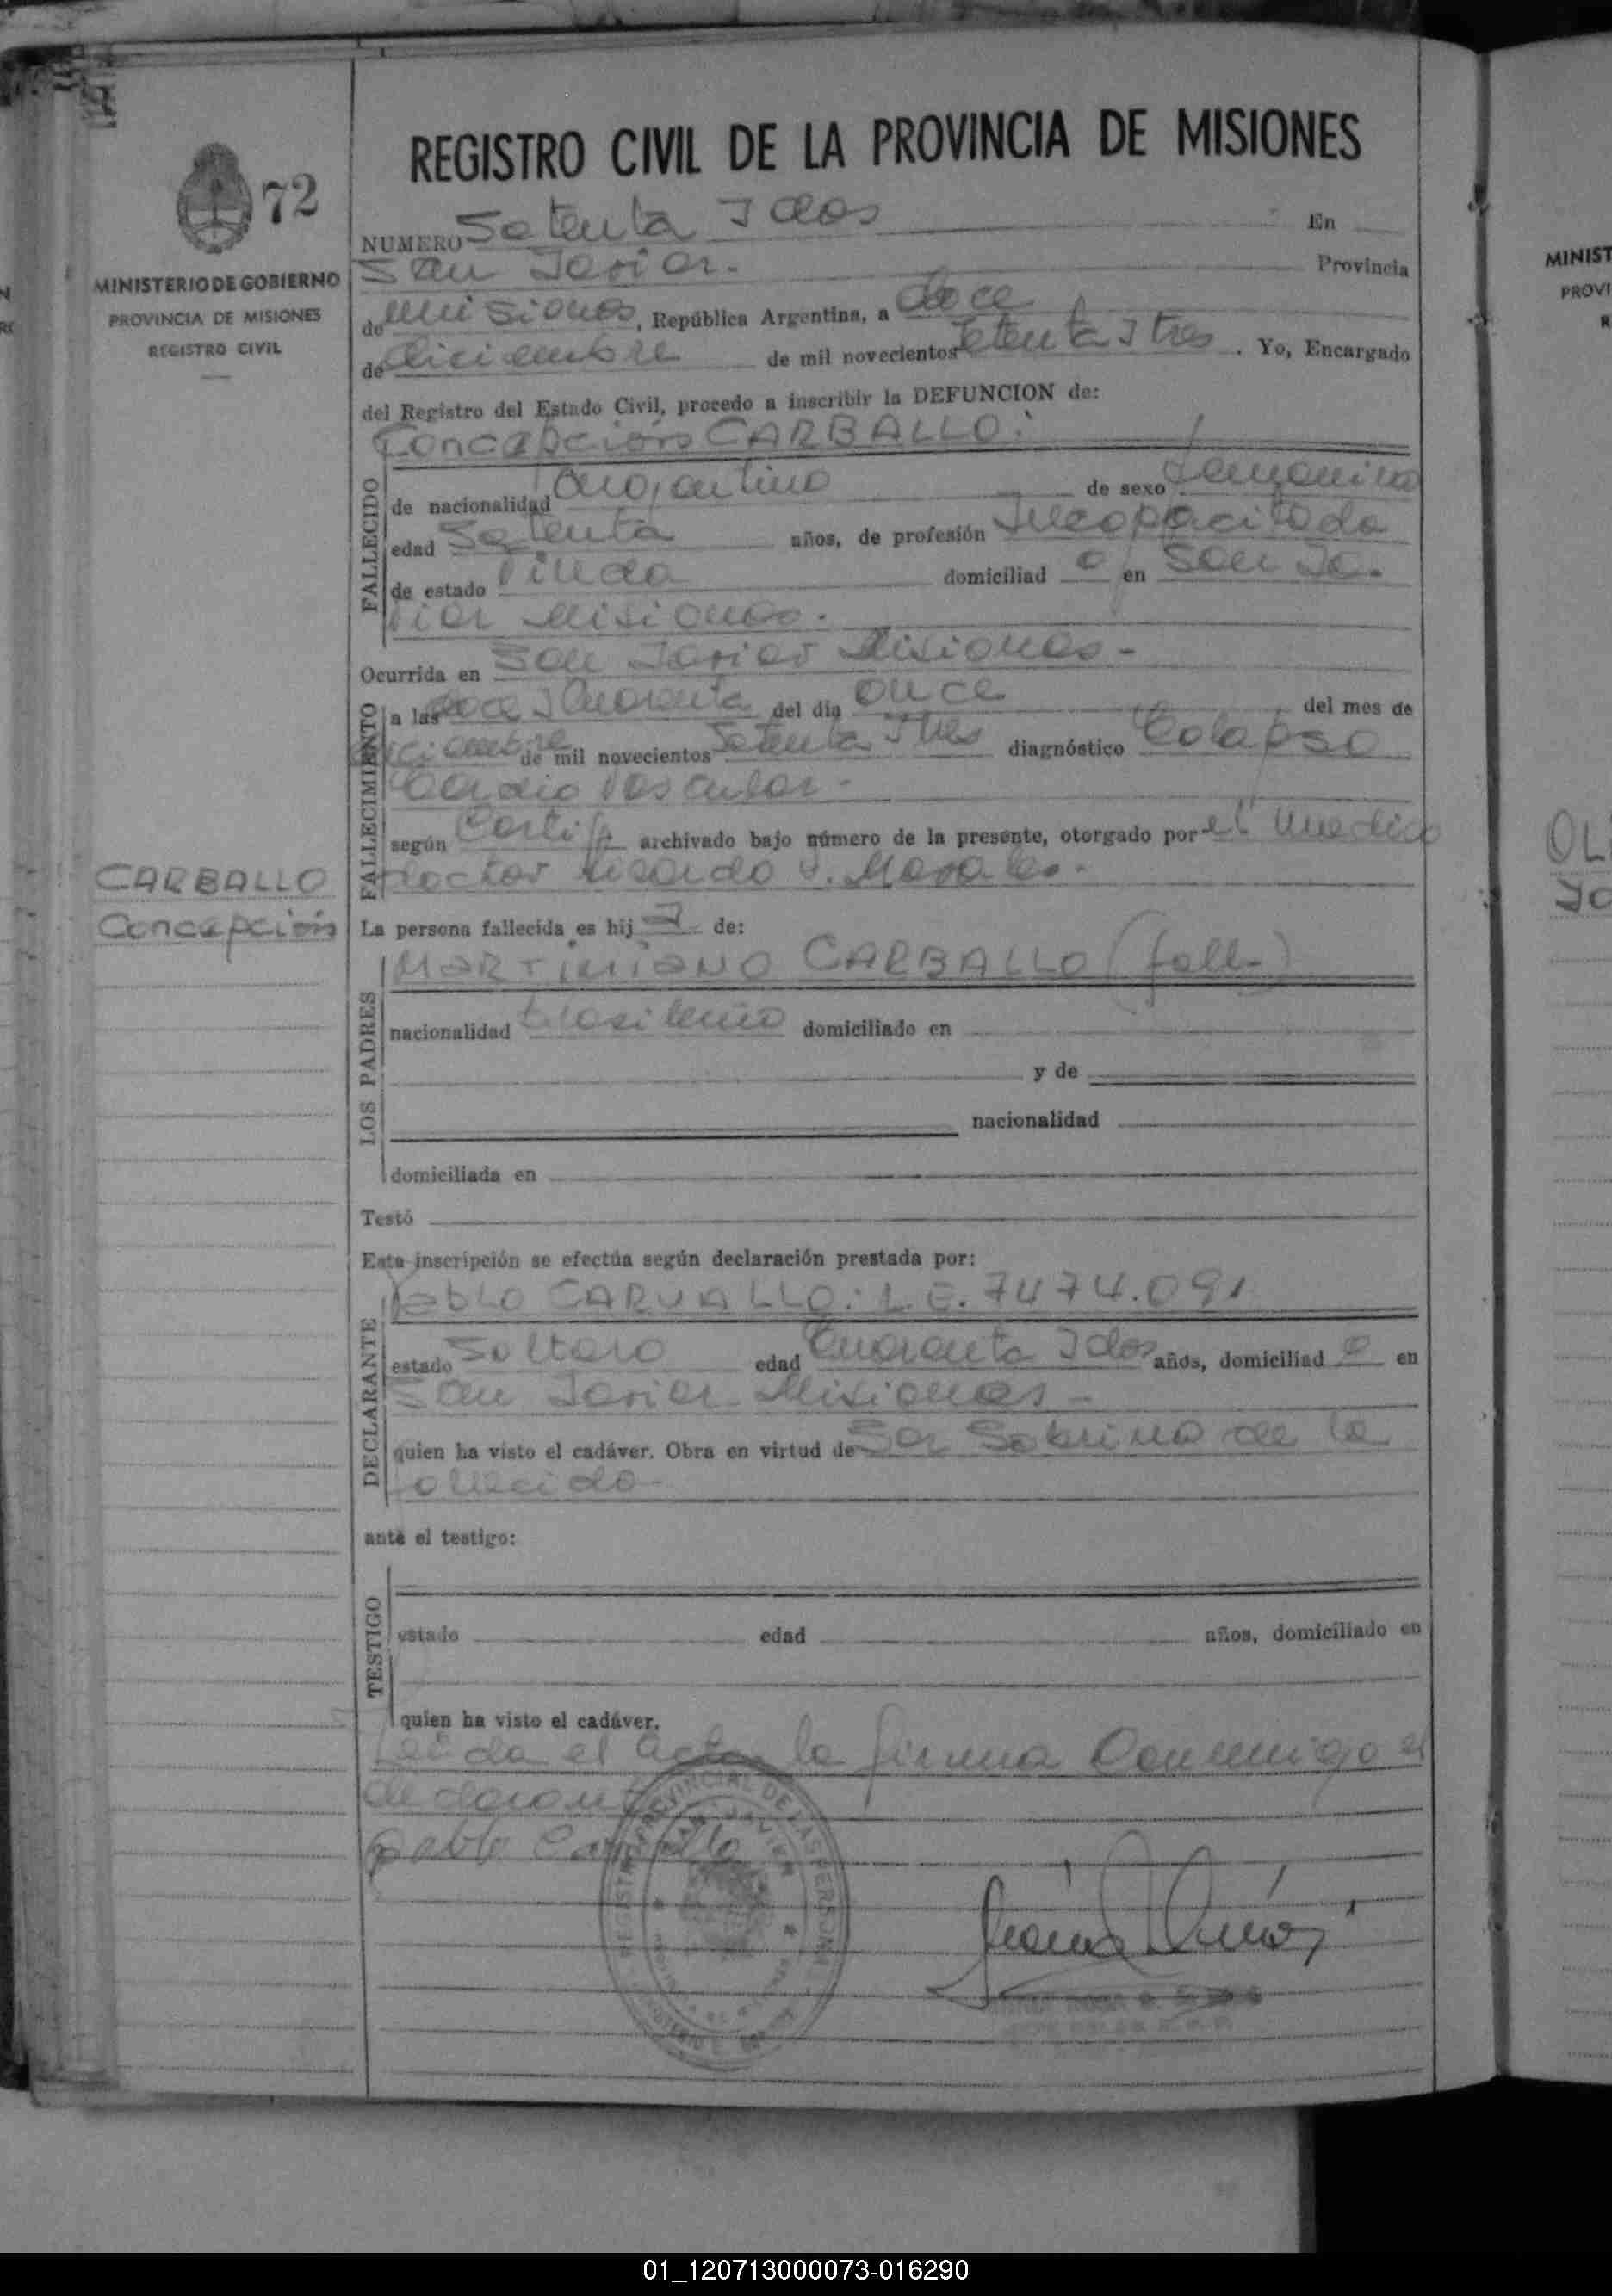 REGISTRO CIVIL DE LA PROVINCIA DE MISIONES
72
MINISTERIO DE GOBIERNO
PROVINCIA DE MISIONES
REGISTRO CIVIL
NUMERO Setenta y dos En
San Javier.- Provincia
de Misiones, República Argentina, a doce
de diciembre de mil novecientos setenta y tres. Yo, Encargado
del Registro del Estado Civil, procedo a inscribir la DEFUNCION de:
Concepción CARBALLO.
FALLECIDO
de nacionalidad Argentina de sexo femenino
edad Setenta años, de profesión Incapacitada
de estado Viuda domiciliad a en San Ja-
vier Misiones.
Ocurrida en San Javier Misiones-
FALLECIMIENTO
a las doce y cuarenta del día once del mes de
diciembre de mil novecientos setenta y tres diagnóstico Colapso
Cardio Vascular-
según Certif. archivado bajo número de la presente, otorgado por el Medico
doctor Morales.-
CARBALLO
Concepción
La persona fallecida es hij a de:
LOS PADRES
MARTINIANO CARBALLO (fall.)
nacionalidad brasileño domiciliado en
y de
nacionalidad
domiciliada en
Testó
Esta inscripción se efectúa según declaración prestada por:
DECLARANTE
Pablo CARVALLO. L.E. 7474.091
estado Soltero edad Cuarenta y dos años, domiciliad o en
San Javier Misiones-
quien ha visto el cadáver. Obra en virtud de Ser Sobrino de la
fallecida-
ante el testigo:
TESTIGO
estado edad años, domiciliado en
quien ha visto el cadáver.
Leída el acta la firma Conmigo el
declarante
Pablo Carvallo
MINIST
PROVI
R
OL
01_120713000073-016290